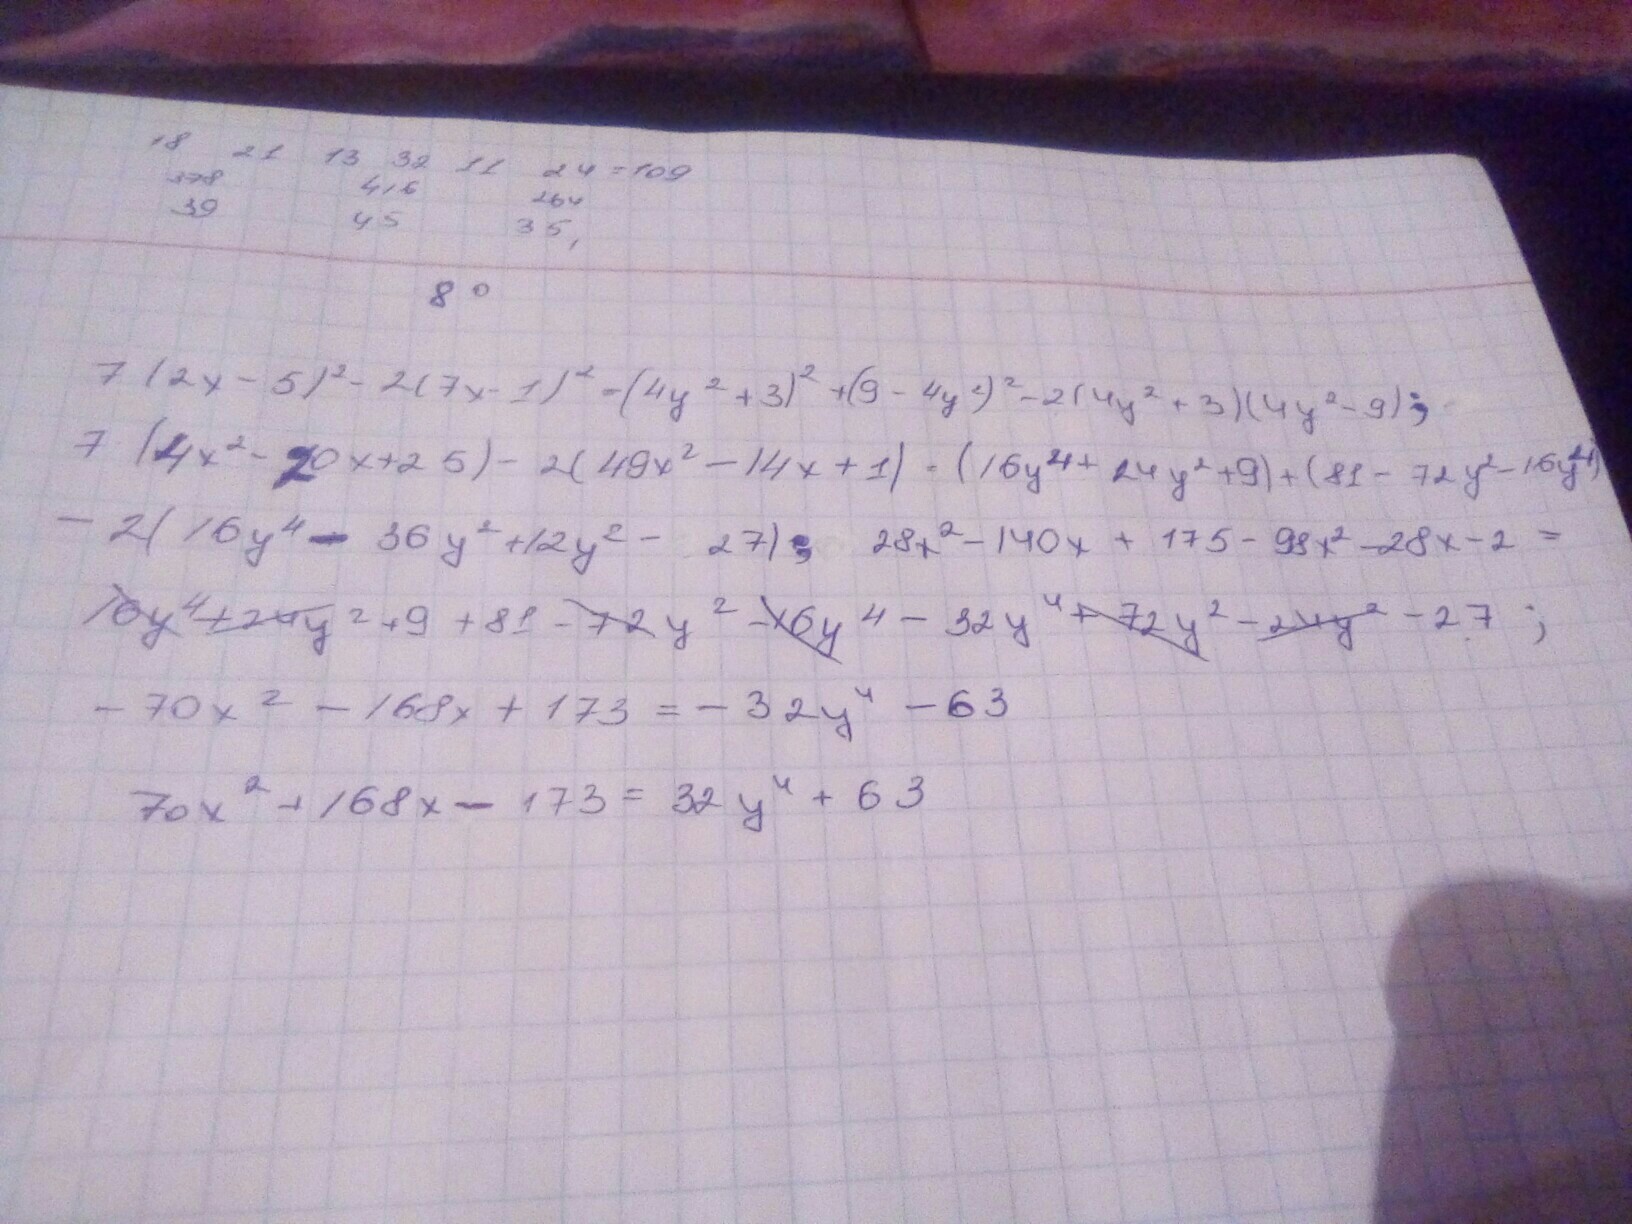 18 21 13 32 11 24 = 109
378 416 264
39 45 35,
8°
7 (2x - 5)² - 2(7x - 1)² = (4y² + 3)² + (9 - 4y²)² - 2(4y² + 3)(4y² - 9);
7 (4x² - 20x + 25) - 2(49x² - 14x + 1) = (16y⁴ + 24y² + 9) + (81 - 72y² - 16y⁴)
- 2(16y⁴ - 36y² + 12y² - 27); 28x² - 140x + 175 - 98x² - 28x - 2 =
16y⁴ + 24y² + 9 + 81 - 72y² - 16y⁴ - 32y⁴ + 72y² - 24y² - 27;
- 70x² - 168x + 173 = - 32y⁴ - 63
70x² + 168x - 173 = 32y⁴ + 63